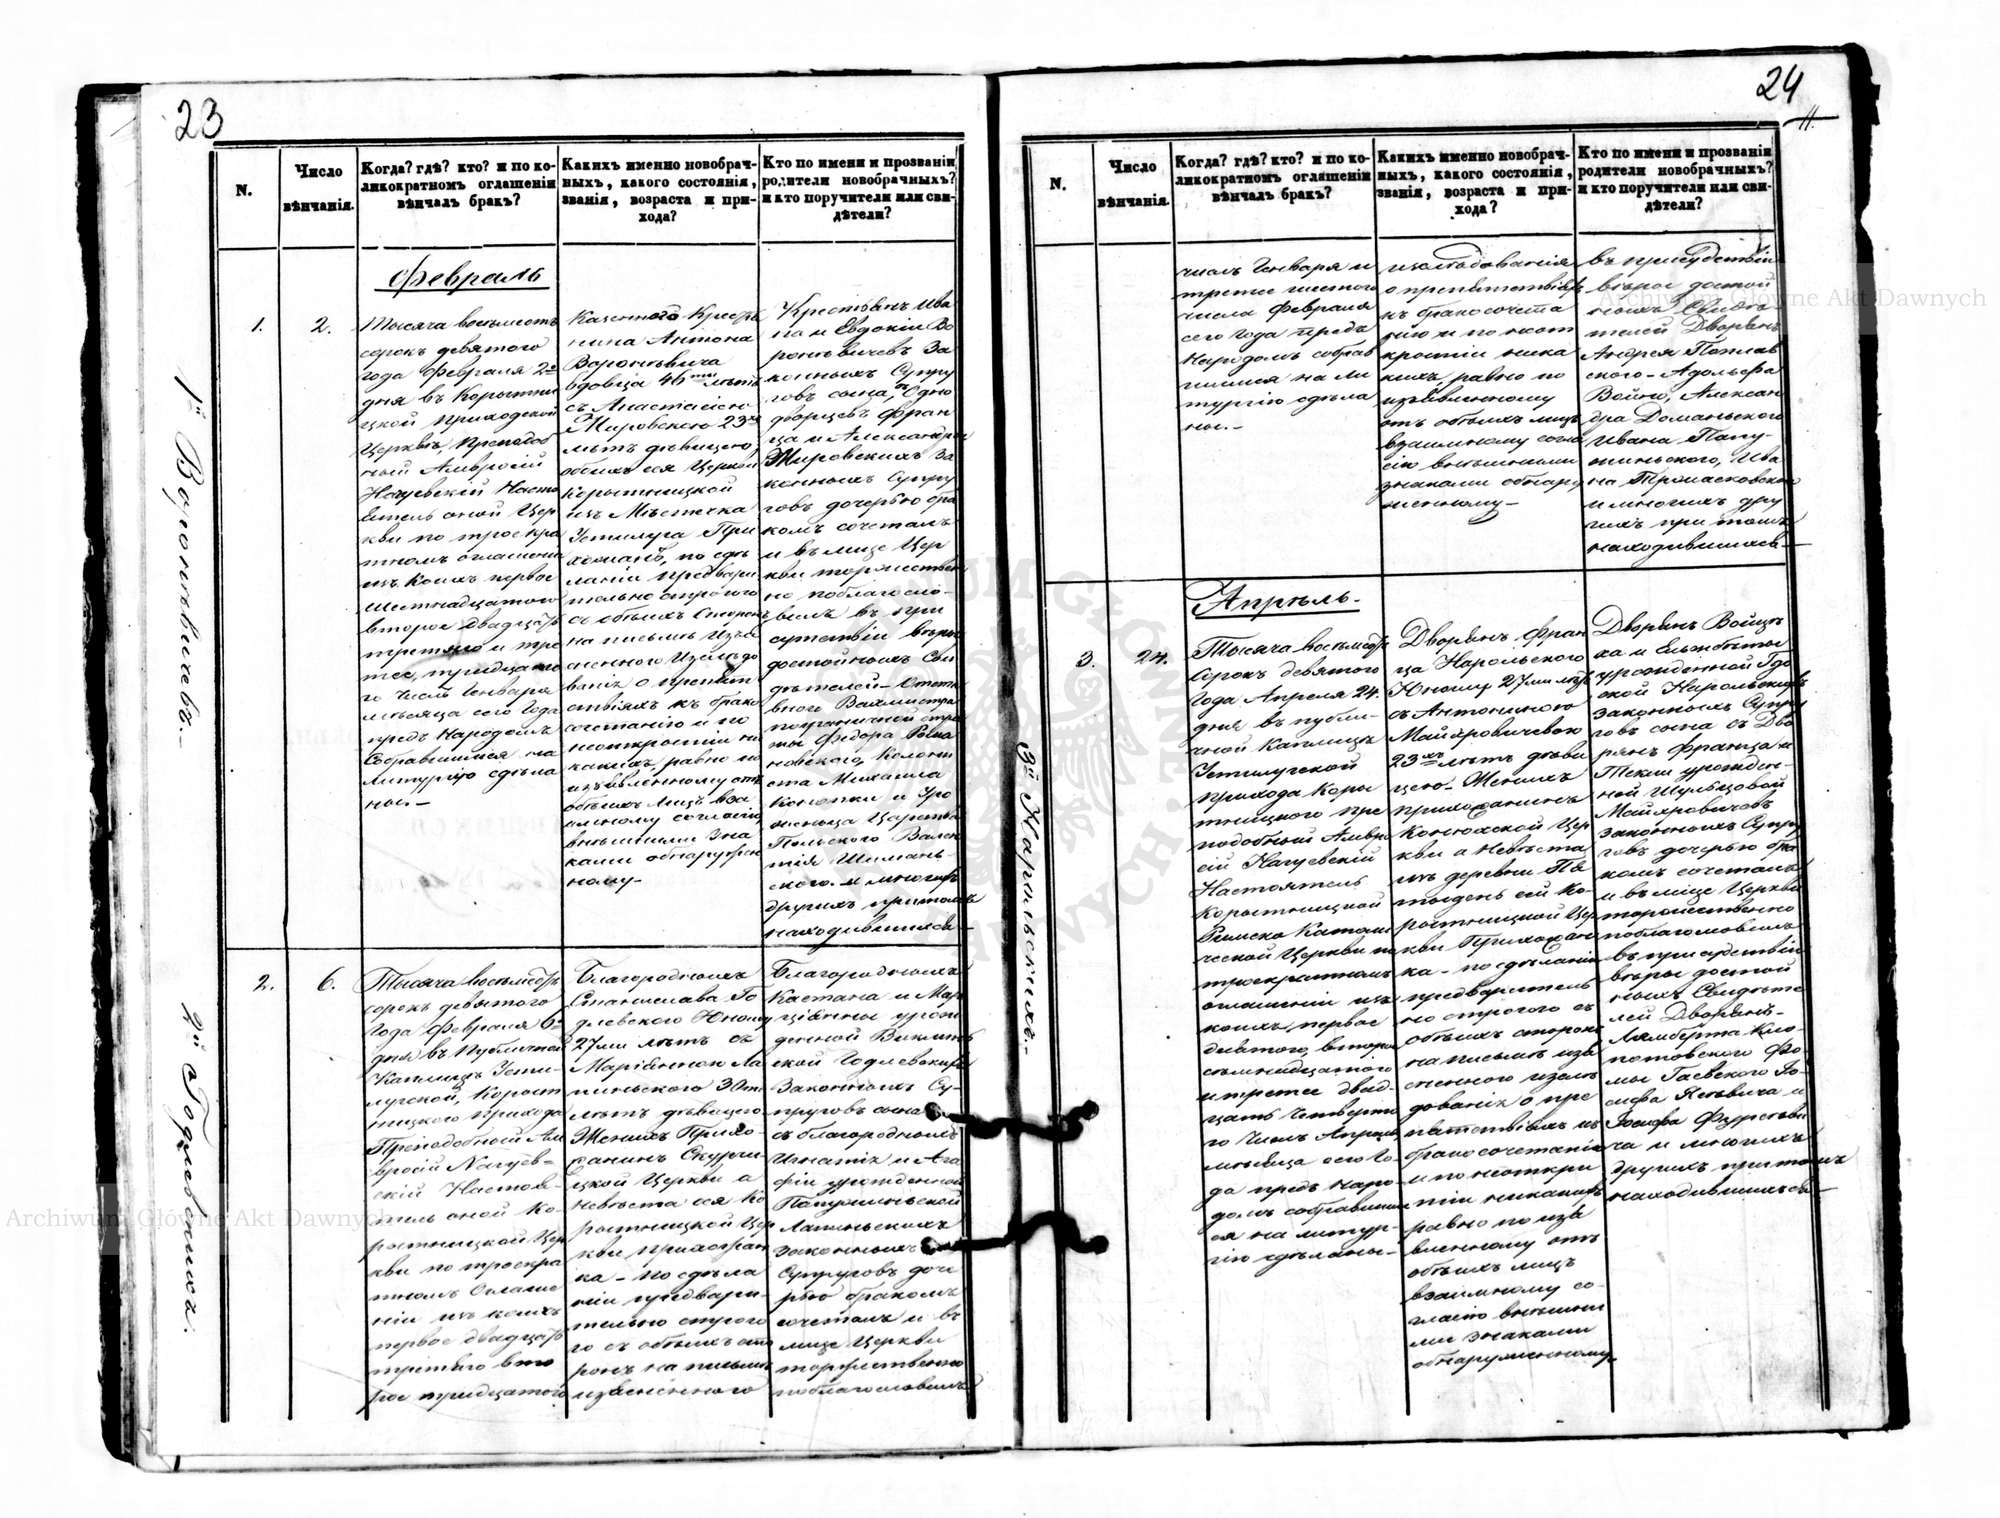 23
N.
Число
вѣнчанія.
Когда? гдѣ? кто? и по ко-
ликократномъ оглашеніи
вѣнчалъ бракъ?
Какихъ именно новобрач-
ныхъ, какого состоянія,
званія, возраста и при-
хода?
Кто по имени и прозванію
родители новобрачныхъ?
и кто поручители или сви-
дѣтели?
1й Воронкѣвичевъ.-
1.
2.
Февраль
Тысяча восемьсотъ
сорокъ девятого
года Февраля 2го
дня въ Корытни
цкой приходской
Церквѣ, Преподоб
ный Амвросій
Нагуевскій Насто
ятель оной Цер
кви по троекра
тномъ оглашеніи
изъ коихъ первое
шестнадцатого
второе двадцать
третяго и тре
тее, тридцато
го числъ Генваря
мѣсяца сего года
предъ Народомъ
собравшимся на
Литургію сдѣла
ны.-
Казенного Кресть
янина Антона
Воронкѣвича
вдовца 46ти лѣтъ
съ Анастасіею
Жировскою 23хъ
лѣтъ дѣвицею,
обоихъ сея Церкви
Корытницкой
изъ Мѣстечка
Устилуга При
хожанъ, по сдѣ
ланіи предвари
тельно строгого
съ обѣихъ Сторонъ
на письмѣ изъя
сненного Изслѣдо
ванія о препят
ствіяхъ къ брако
сочетанію и по
неоткрытіи ни
какихъ, равно по
изъявленному отъ
обѣихъ лицъ вза
имному согласію
внѣшними Зна
ками обнаружен
ному-
Крестьянъ Ива
на и Евдокіи Во
ронкѣвичевъ За
конныхъ Супру
говъ сына, съ Одно
дворцевъ Фран
ца и Александры
Жировскихъ За
конныхъ Супру
говъ дочерью бра
комъ сочеталъ
и въ лице Цер
кви торжествен
но поблагосло-
вилъ въ при
сутствіи вѣры
достойныхъ Сви
дѣтелей- Отста
вного Вахмистра
пограничной стра
жи Федора
новского, Колони
ста Михаила
Конопки и Уро
женца Царства
Польского Вален
тія Шиманъ-
ского и многихъ
другихъ при томъ
находившихся-
2й Годлевскихъ.
2.
6.
Тысяча восемьсотъ
сорокъ девятого
года Февраля 6го
дня въ Публичной
Каплицѣ Усти-
лугской, Корыт
ницкого прихода
Преподобный Ам
вросій Нагуев-
скій Настоя-
тель оной Ко-
рытницкой Цер
кви по троекра
тномъ Оглаше
ніи изъ коихъ
первое двадцать
третяго вто
рое тридцатого
Благородныхъ
Станислава Го
длевского Юношу
27ми лѣтъ съ
Маріянною Ла
пинского 30ти
лѣтъ дѣвицею
Женихъ Прихо-
жанинъ Скурчи
цкой Церкви а
невѣста сея Ко
рытницкой Цер
кви прихожан
ка- По сдѣла
ніи предвари-
тельно строго
го съ обѣихъ сто
ронъ на письмѣ
изъясненного
Благородныхъ
Каетана и Мар
ціянны урож
денной
ской Годлевскихъ
Законныхъ Су-
пруговъ сына
съ благородныхъ
Игнатія и Ага
фіи урожденной
Папушинской
Лапинскихъ
законныхъ
Супруговъ доче
рью бракомъ
сочеталъ и въ
лице Церкви
торжественно
поблагословилъ
24
11.
N.
Число
вѣнчанія.
Когда? гдѣ? кто? и по ко-
ликократномъ оглашеніи
вѣнчалъ бракъ?
Какихъ именно новобрач-
ныхъ, какого состоянія,
званія, возраста и при-
хода?
Кто по имени и прозваніи
родители новобрачныхъ?
и кто поручители или сви-
дѣтели?
числъ Генваря и
третее шестого
числа Февраля
сего года предъ
Народомъ собрав
шимся на Ли
тургію сдѣла
ны.-
изслѣдованія
о препятствіяхъ
къ бракосочета
нію и по неот
крытіи ника
кихъ, равно по
изъявленному
отъ обѣихъ лицъ
взаимному согла
сію внѣшними
знаками обнару
женному-
въ присудствіи
вѣры достой
ныхъ Свидѣ
телей Дворянъ
Андрея Поплав
ского- Адольфа
Войны, Алексан
дра Доманьского
Ивана Папу-
шинского, Ива
на
и многихъ дру
гихъ при томъ
находившихся-
3й Нарольскихъ.-
3.
24.
Апрѣль.
Тысяча восемьсотъ
Сорокъ девятого
Года Апреля 24.
дня въ публи-
чной Каплицѣ
Устилугской
прихода Коры
тницкого пре
подобный Амвро
сій Нагуевскій
Настоятель
Корытницкой
Римско Катали
ческой Церкви по
троекратномъ
оглашеніи изъ
коихъ, первое
девятого, второе
семьнадцатого
и третее двад
цать Четверто
го Числъ Апреля
мѣсяца сего Го-
да предъ Наро
домъ собравшим
ся на литур-
гію сдѣланы-
Дворянъ Фран
ца Нарольского
Юношу 27ми лѣтъ
съ Антониною
Майхровичевою
23хъ лѣтъ дѣви
цею- Женихъ
прихожанинъ
Конюхской Цер
кви а Невѣста
изъ деревни Пя
тыдень сей Ко-
рытницкой Цер
кви Прихожан
ка- по сдѣланіи
предваритель
но строгого съ
обѣихъ сторонъ
на письмѣ изъя
сненного изслѣ
дованія о пре
пятствіяхъ къ
бракосочетанію
и по неоткры
тіи никакихъ
равно по изъя
вленному отъ
обѣихъ лицъ
взаимному со-
гласію внѣшни
ми знаками
обнаруженному.
Дворянъ Войцѣ
ха и Ельжбеты
урожденной Гдо
ской Нарольскихъ
законныхъ Супру
говъ сына съ Дво
рянъ Франца и
Текли урожден-
ной Шульцовой
Майхровичовъ
Законныхъ Супру
говъ дочерью бра
комъ сочеталъ
и въ лице Церкви
торжественно
поблагословилъ
въ присудствіи
вѣры достой
ныхъ Свидѣте
лей Дворянъ-
Лямберта Кло-
потовского Фо-
мы Гаевского Іо-
сифа Яковича и
Іосифа Федукови
ча и многихъ
другихъ при томъ
находившихся-
Archiwum Główne Akt Dawnych
Archiwum Główne Akt Dawnych
ARCHIWUM GŁÓWNE AKT DAWNYCH